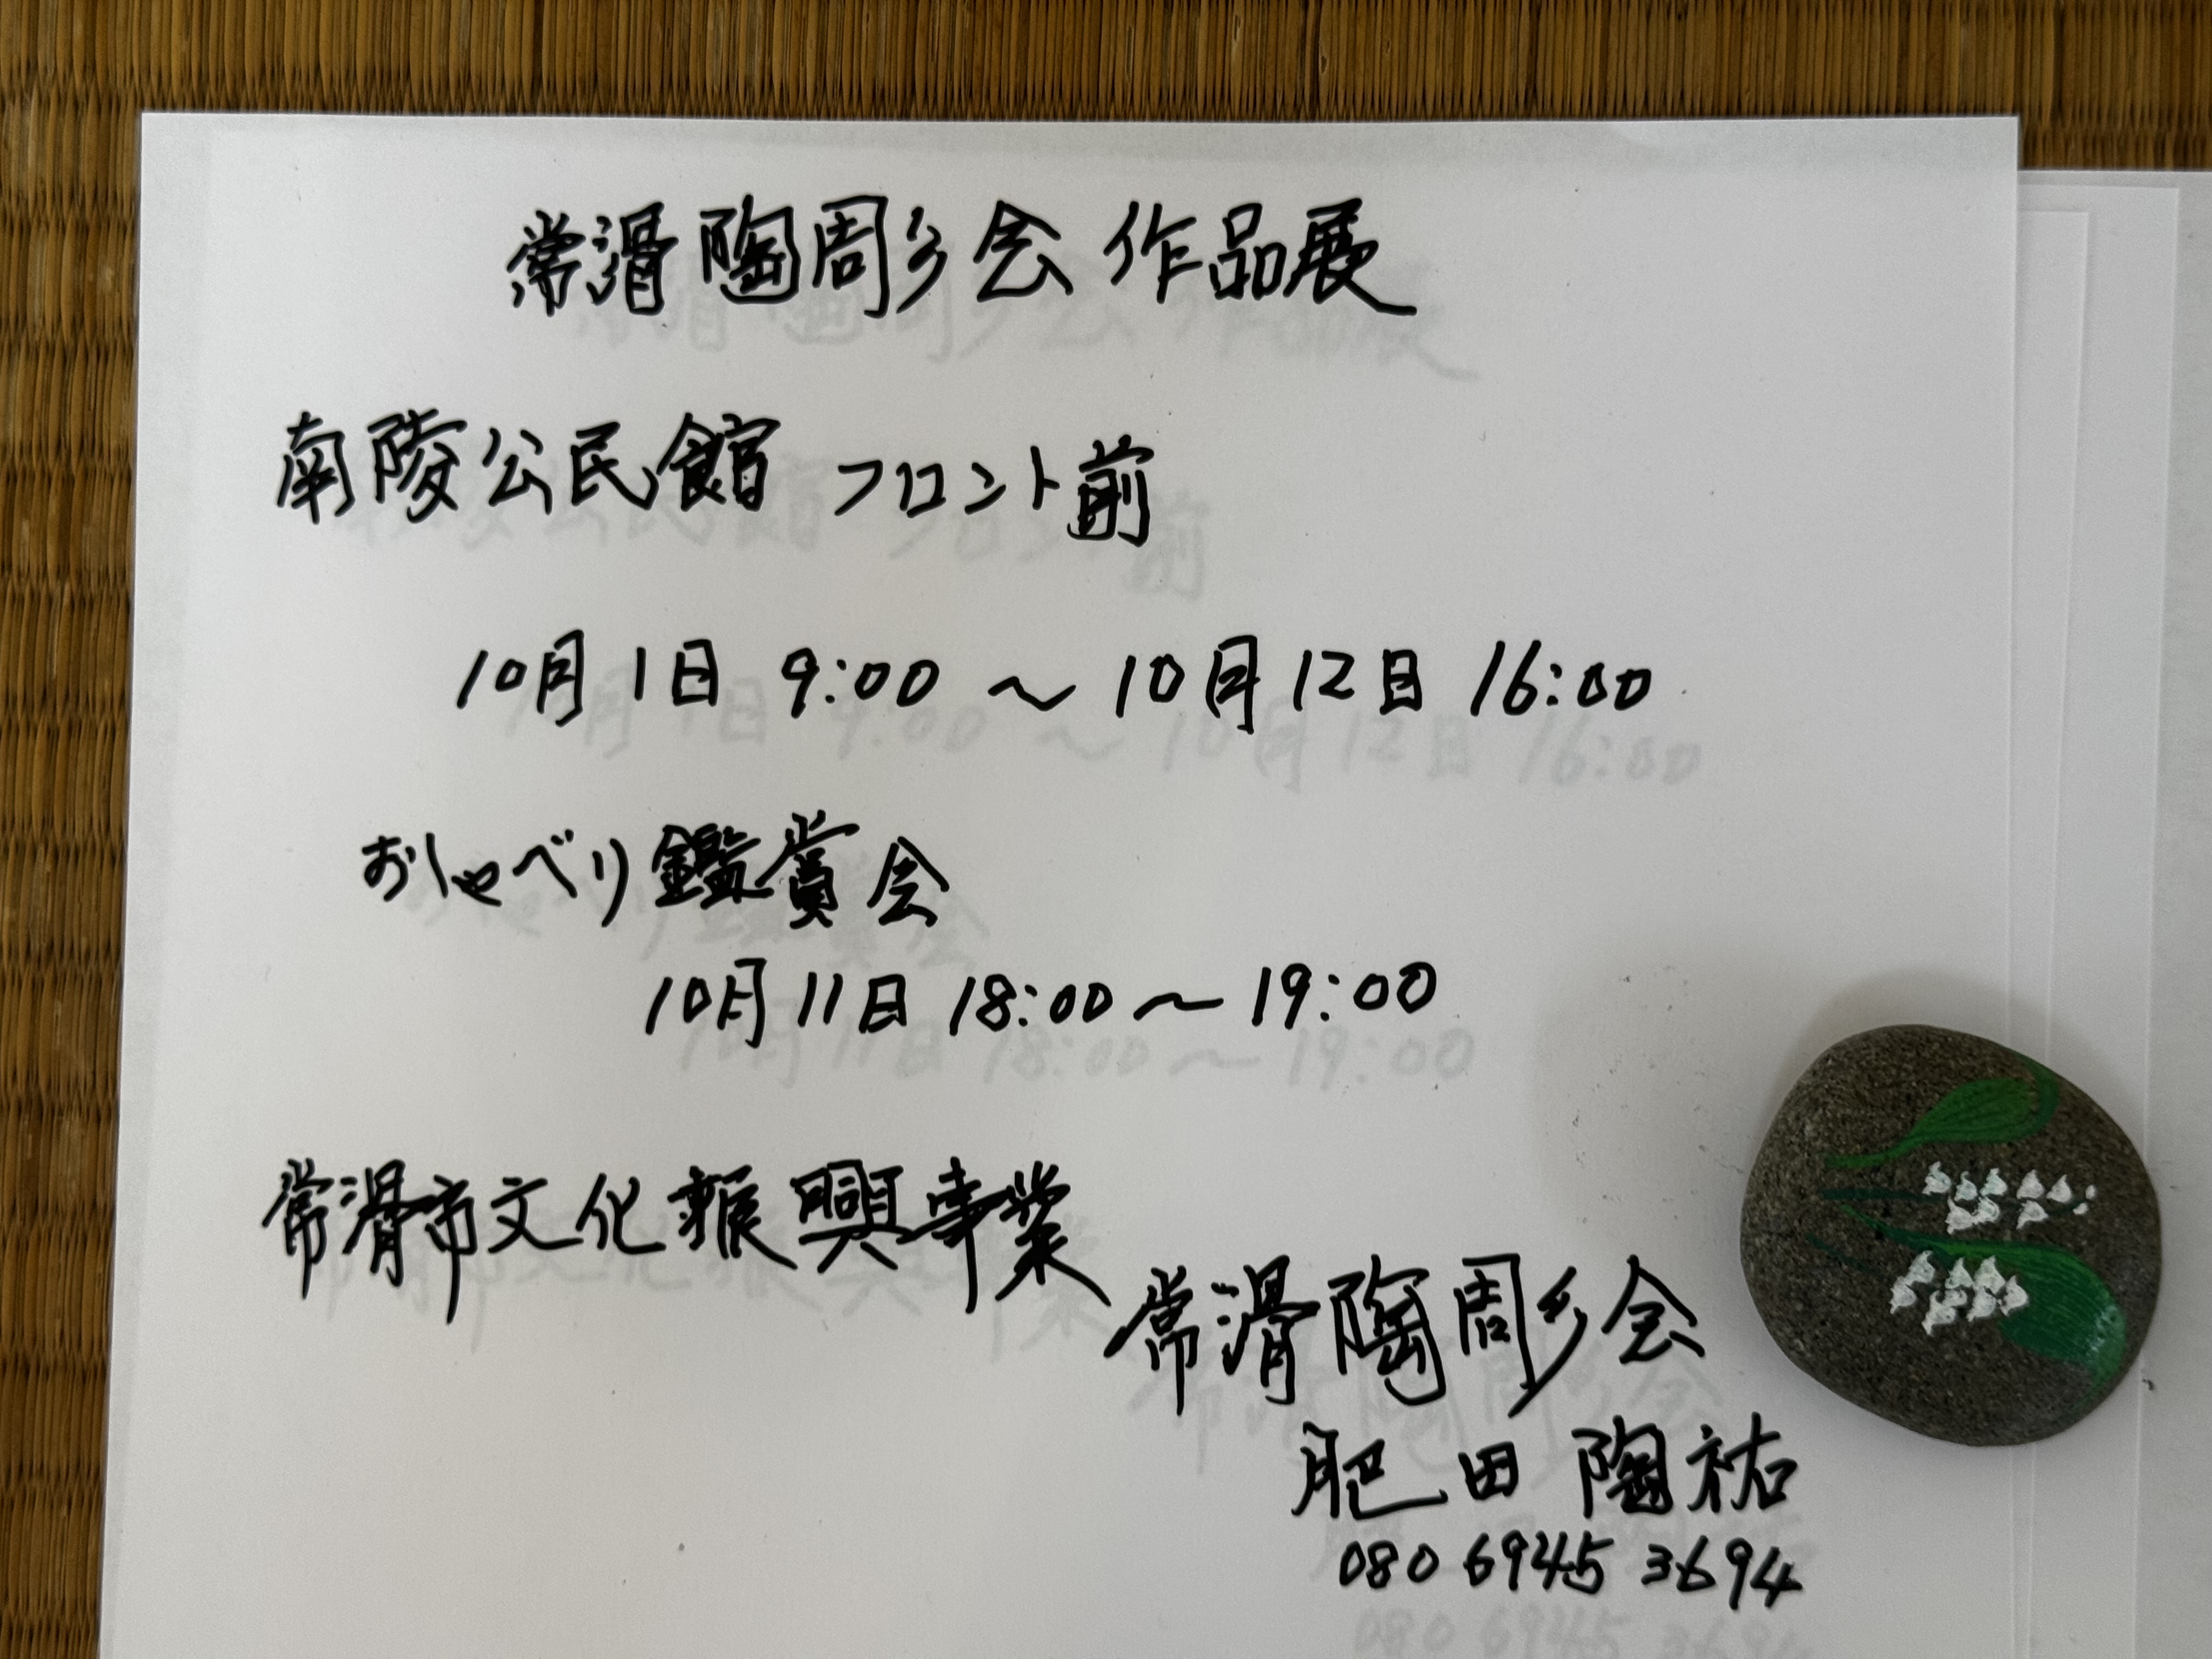 常滑陶彫会作品展
南陵公民館 フロント前
10月1日 9:00 〜 10月12日 16:00
おしゃべり鑑賞会
10月11日 18:00 〜 19:00
常滑市文化振興事業
常滑陶彫会
肥田 陶祐
080 6945 3694